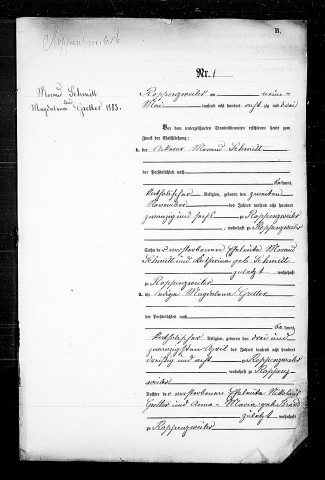 Roppenzweiler
B.
Nr. 1
Morand Schmitt
und
Magdalena Gretter 1883.
Roppenzweiler am neun
Mai tausend acht hundert acht zig und drei
Vor dem unterzeichneten Standesbeamten erschienen heute zum
Zweck der Eheschließung:
1. der Ackerer Morand Schmitt
der Persönlichkeit nach
bekannt,
katholischer Religion, geboren den zweiten
November des Jahres tausend acht hundert
zwanzig und sechs zu Roppenzweiler
, wohnhaft zu Roppenzweiler
Sohn der verstorbenen Eheleute Morand
Schmitt und Katharina geb. Schmitt
zuletzt wohnhaft
zu Roppenzweiler
2. die ledige Magdalena Gretter
der Persönlichkeit nach
bekannt,
katholischer Religion, geboren den drei und
zwanzigsten April des Jahres tausend acht hundert
dreißig und acht zu Roppenzweiler
, wohnhaft zu Roppenz-
weiler
Tochter der verstorbenen Eheleute Nikolaus
Gretter und Anna-Maria geb.
zuletzt wohnhaft
zu Roppenzweiler